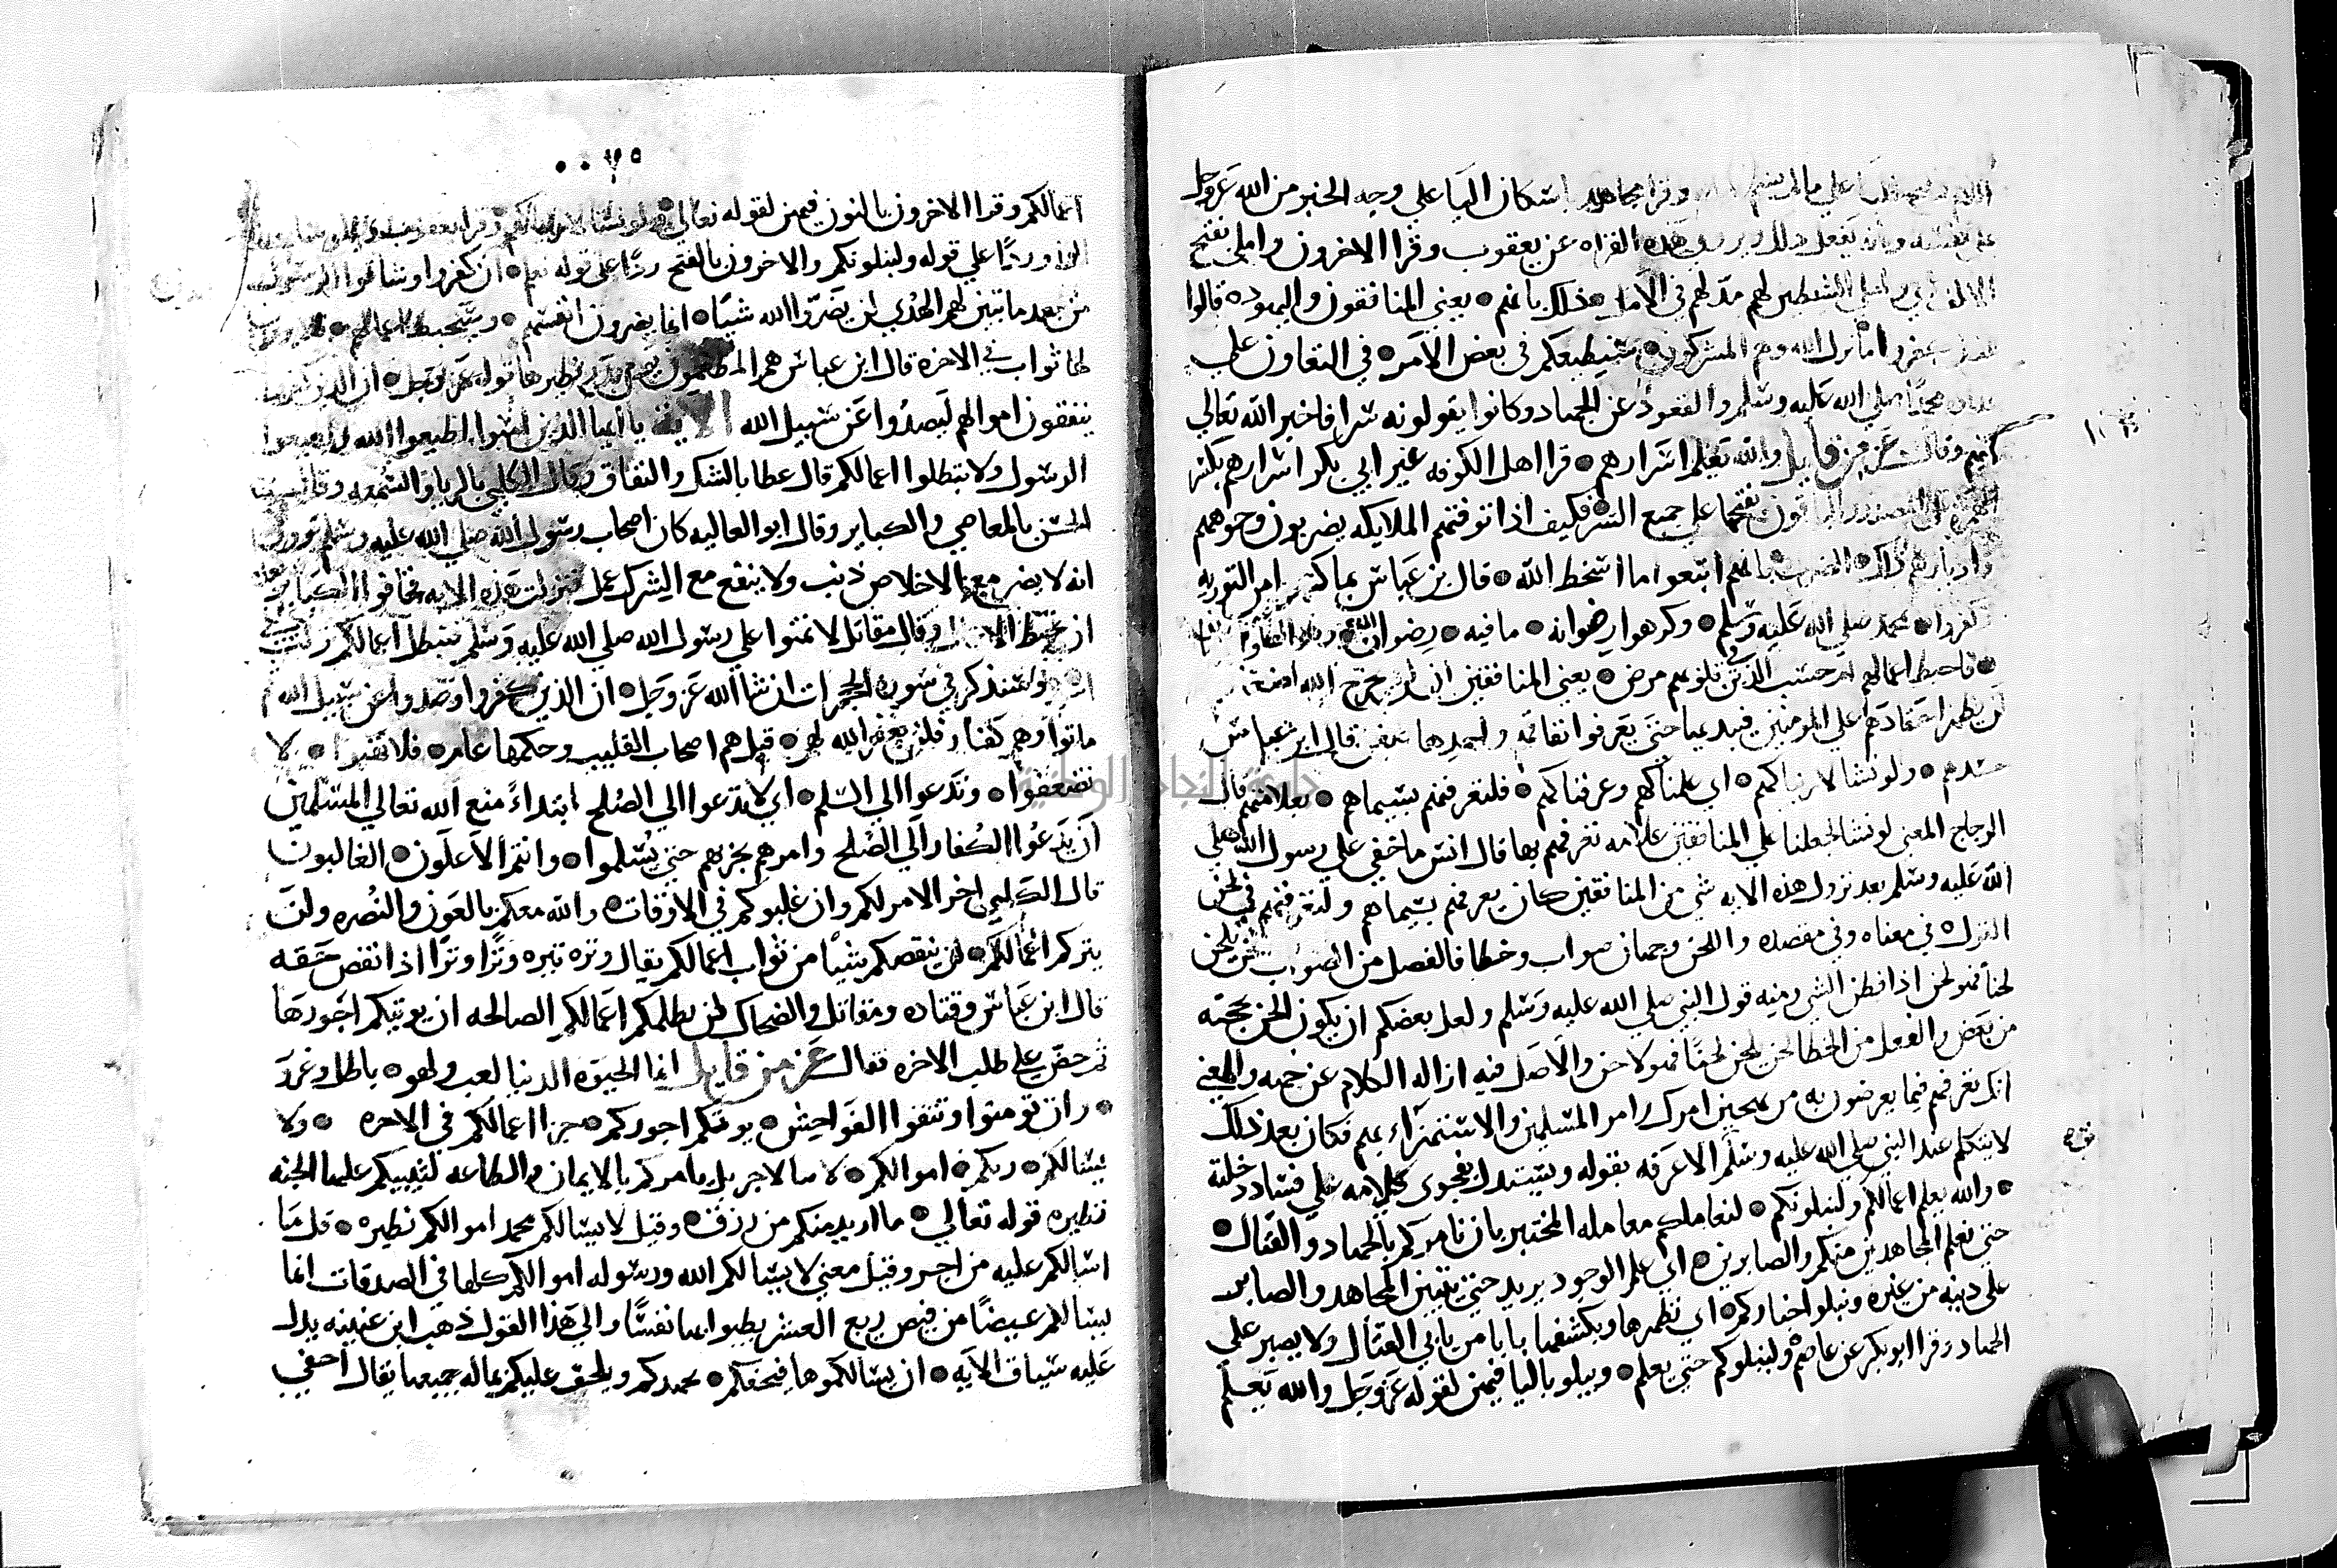 وقرا مجاهد باسكان اليا علي وجه الخبر من الله عز وجل
هذه القراه عن يعقوب وقرا الاخرون واملي بفتح
الالف مد لهم في الامل ذلك بانهم يعني المنافقون واليهود قالوا
ما نزل الله وهم المشركون سنطيعكم في بعض الامر في التعاون علي
محمد صلي الله عليه وسلم والقعود عن الجهاد وكانوا يقولونه سرا فاخبر الله تعالي
عنهم وقال عز من قايل والله يعلم اسرارهم قرا اهل الكوفه غير ابي بكر اسرارهم بكسر
بفتحها علي جمع السر فكيف اذا توفتهم الملايكه يضربون وجوههم
وادبارهم ذلك الضرب بانهم اتبعوا ما اسخط الله قال بن عباس بما كتموا من التوريه
وكفروا بمحمد صلي الله عليه وسلم وكرهوا رضوانه ما فيه رضوان الله
فاحبط اعمالهم ام حسب الذين في قلوبهم مرض يعني المنافقين ان لن يخرج الله اضغانهم
لن يظهر احقادهم علي المومنين فيبديها حتي يعرفوا نفاقهم قال ابن عباس
حسدهم ولو نشا لاريناكهم اي علمناكهم وعرفناكهم فلتعرفنهم بسيماهم بعلامتهم قال
الزجاج المعني لو نشا لجعلنا علي المنافقين علامه تعرفهم بها قال انس ما خفي علي رسول الله صلي
الله عليه وسلم بعد نزول هذه الايه شي من المنافقين كان يعرفهم بسيماهم ولتعرفنهم في لحن
القول في معناه وفي مقصده واللحن وجهان صواب وخطا فالفعل من الصواب لحن يلحن
لحنا فهو لحن اذا فطن الشي ومنه قول النبي صلي الله عليه وسلم ولعل بعضكم ان يكون الحن بحجته
من بعض والفعل من الخطا لحن يلحن لحنا فهو لاحن والاصل فيه ازاله الكلام عن جهته والمعني
انك تعرفهم فيما يعرضون به من تهجين امرك وامر المسلمين والاستهزاء بهم فكان بعد ذلك
لا يتكلم عند النبي صلي الله عليه وسلم الا عرفه بقوله ويستدل بفحوي كلامه علي فساد دخلته
والله يعلم اعمالكم ولنبلونكم لنعاملنكم معامله المختبر بان نامركم بالجهاد والقتال
حتي نعلم المجاهدين منكم والصابرين اي علم الوجود يريد حتي يتبين المجاهد والصابر
علي دينه من غيره ونبلوا اخباركم اي نظهرها ونكشفها بابا من يابي القتال ولا يصبر علي
الجهاد وقرا ابو بكر عن عاصم وليبلونكم حتي يعلم ويبلو باليا فيهن لقوله عز وجل والله يعلم
٧٥
اعمالكم وقرا الاخرون بالنون فيهن لقوله تعالي ولو نشا لاريناكهم وقرا يعقوب
الواو ردا علي قوله ولنبلونكم والاخرون بالفتح ردا علي قوله نعلم ان كفروا وشاقوا الرسول
من بعد ما تبين لهم الهدي لن يضروا الله شيا انما يضرون انفسهم وسيحبط اعمالهم
لها ثواب في الاخره قال ابن عباس هم المطعمون يوم بدر نظيرها قوله عز وجل ان الذين كفروا
ينفقون اموالهم ليصدوا عن سبيل الله الايه ياايها الذين امنوا اطيعوا الله واطيعوا
الرسول ولا تبطلوا اعمالكم قال عطا بالشك والنفاق وقال الكلبي بالريا والسمعه وقال
الحسن بالمعاصي والكباير وقال ابو العاليه كان اصحاب رسول الله صلي الله عليه وسلم يرون
انه لا يضر مع الاخلاص ذنب ولا ينفع مع الشرك عمل فنزلت هذه الايه فخافوا الكباير بعده
ان تحبط الاعمال وقال مقاتل لا تمنوا علي رسول الله صلي الله عليه وسلم فتبطل اعمالكم نزلت في
وسنذكره في سوره الحجرات ان شا الله عز وجل ان الذين كفروا وصدوا عن سبيل الله ثم
ماتوا وهم كفار فلن يغفر الله لهم قيل هم اصحاب القليب وحكمها عام فلا تهنوا لا
تضعفوا وتدعوا الي السلم اي لا تدعوا الي الصلح ابتداء منع الله تعالي المسلمين
ان يدعوا الكفار الي الصلح وامرهم بحربهم حتي يسلموا وانتم الاعلون الغالبون
قال الكلبي اخر الامر لكم وان غلبوكم في الاوقات والله معكم بالعون والنصره ولن
يتركم اعمالكم لن ينقصكم شيا من ثواب اعمالكم يقال وتره يتره وترا وترا اذا نقص حقه
قال ابن عباس وقتاده ومقاتل والضحاك لن يظلمكم اعمالكم الصالحه ان يوتيكم اجورها
ثم حض علي طلب الاخره فقال عز من قايل انما الحيوه الدنيا لعب ولهو باطل وغرور
وان تومنوا وتتقوا الفواحش يوتكم اجوركم جزا اعمالكم في الاخره ولا
يسالكم ربكم اموالكم لايتا الاجر بل يامركم بالايمان والطاعه ليثيبكم عليها الجنه
نظيره قوله تعالي ما اريد منكم من رزق وقيل لا يسالكم محمد اموالكم نظيره قل ما
اسالكم عليه من اجر وقيل معني لا يسالكم الله ورسوله اموالكم كلها في الصدقات انما
يسالكم غيضا من فيض ربع العشر فطيبوا بها نفسا والي هذا القول ذهب ابن عيينه يدل
عليه سياق الايه ان يسالكموها فيحفكم يجهدكم ويلحف عليكم بماله جميعها يقال احفي